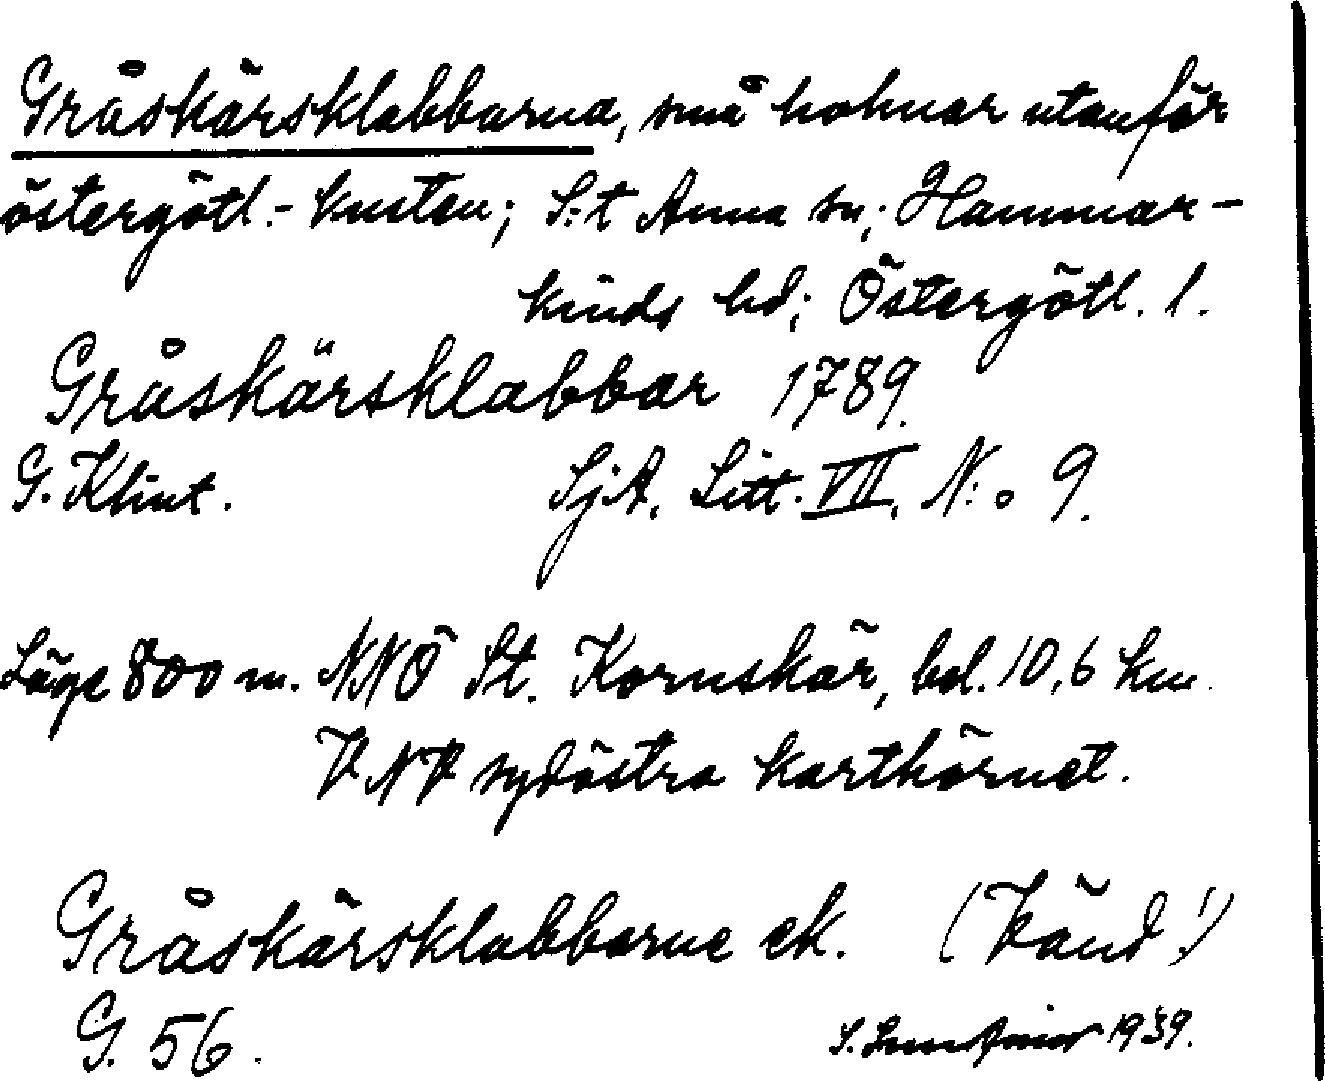 Gråskärsklabbarna, små holmar utanför
östergötl.- kusten; S:t Anna sn; Hammar-
kinds hd; Östergötl. l.
Gråskärsklabbar 1789.
G. Klint. SjA, Litt. VII, N:o 9.
Läge 800 m. NNÖ St. Kornskär, bel. 10,6 km.
VNV sydöstra karthörnet.
Gråskärsklabbarne ek. (Vänd!)
G. 56. S. 1939.